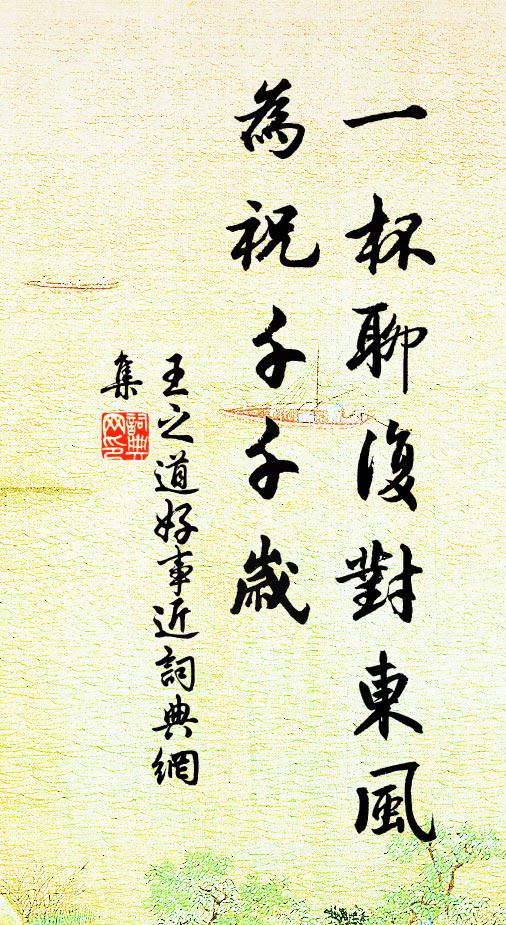 一杯聊復對東風
為祝千千歲
王之道好事近詞典網
集
詞典
网印